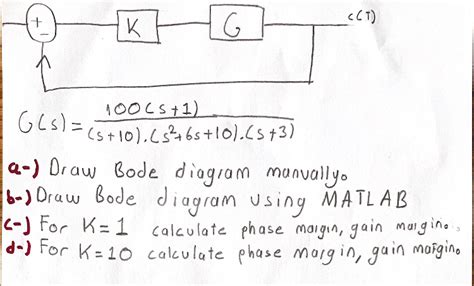 +
-
K
G
c(T)
G(s) = 100(s+1) / (s+10).(s²+6s+10).(s+3)
a-) Draw Bode diagram manually.
b-) Draw Bode diagram using MATLAB
c-) For K=1 calculate phase margin, gain margin.
d-) For K=10 calculate phase margin, gain margin.